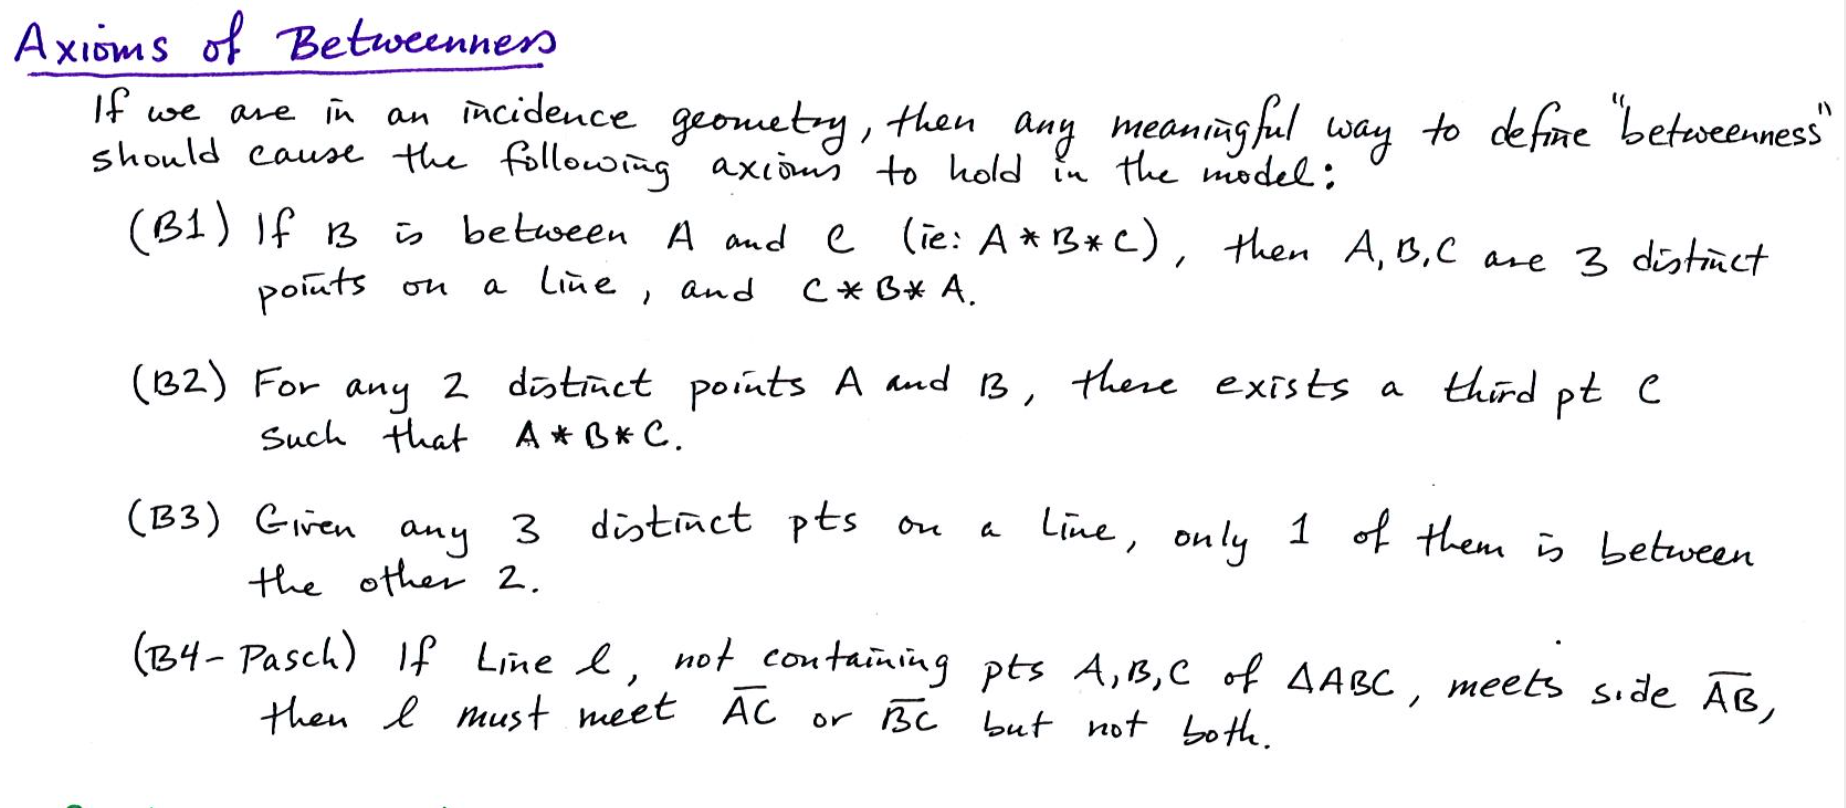 Axioms of Betweenness
If we are in an incidence geometry, then any meaningful way to define "betweenness"
should cause the following axioms to hold in the model:
(B1) If B is between A and C (ie: A * B * C), then A, B, C are 3 distinct
points on a line, and C * B * A.
(B2) For any 2 distinct points A and B, there exists a third pt C
such that A * B * C.
(B3) Given any 3 distinct pts on a line, only 1 of them is between
the other 2.
(B4 - Pasch) If line l, not containing pts A, B, C of △ABC, meets side A̅B̅,
then l must meet A̅C̅ or B̅C̅ but not both.